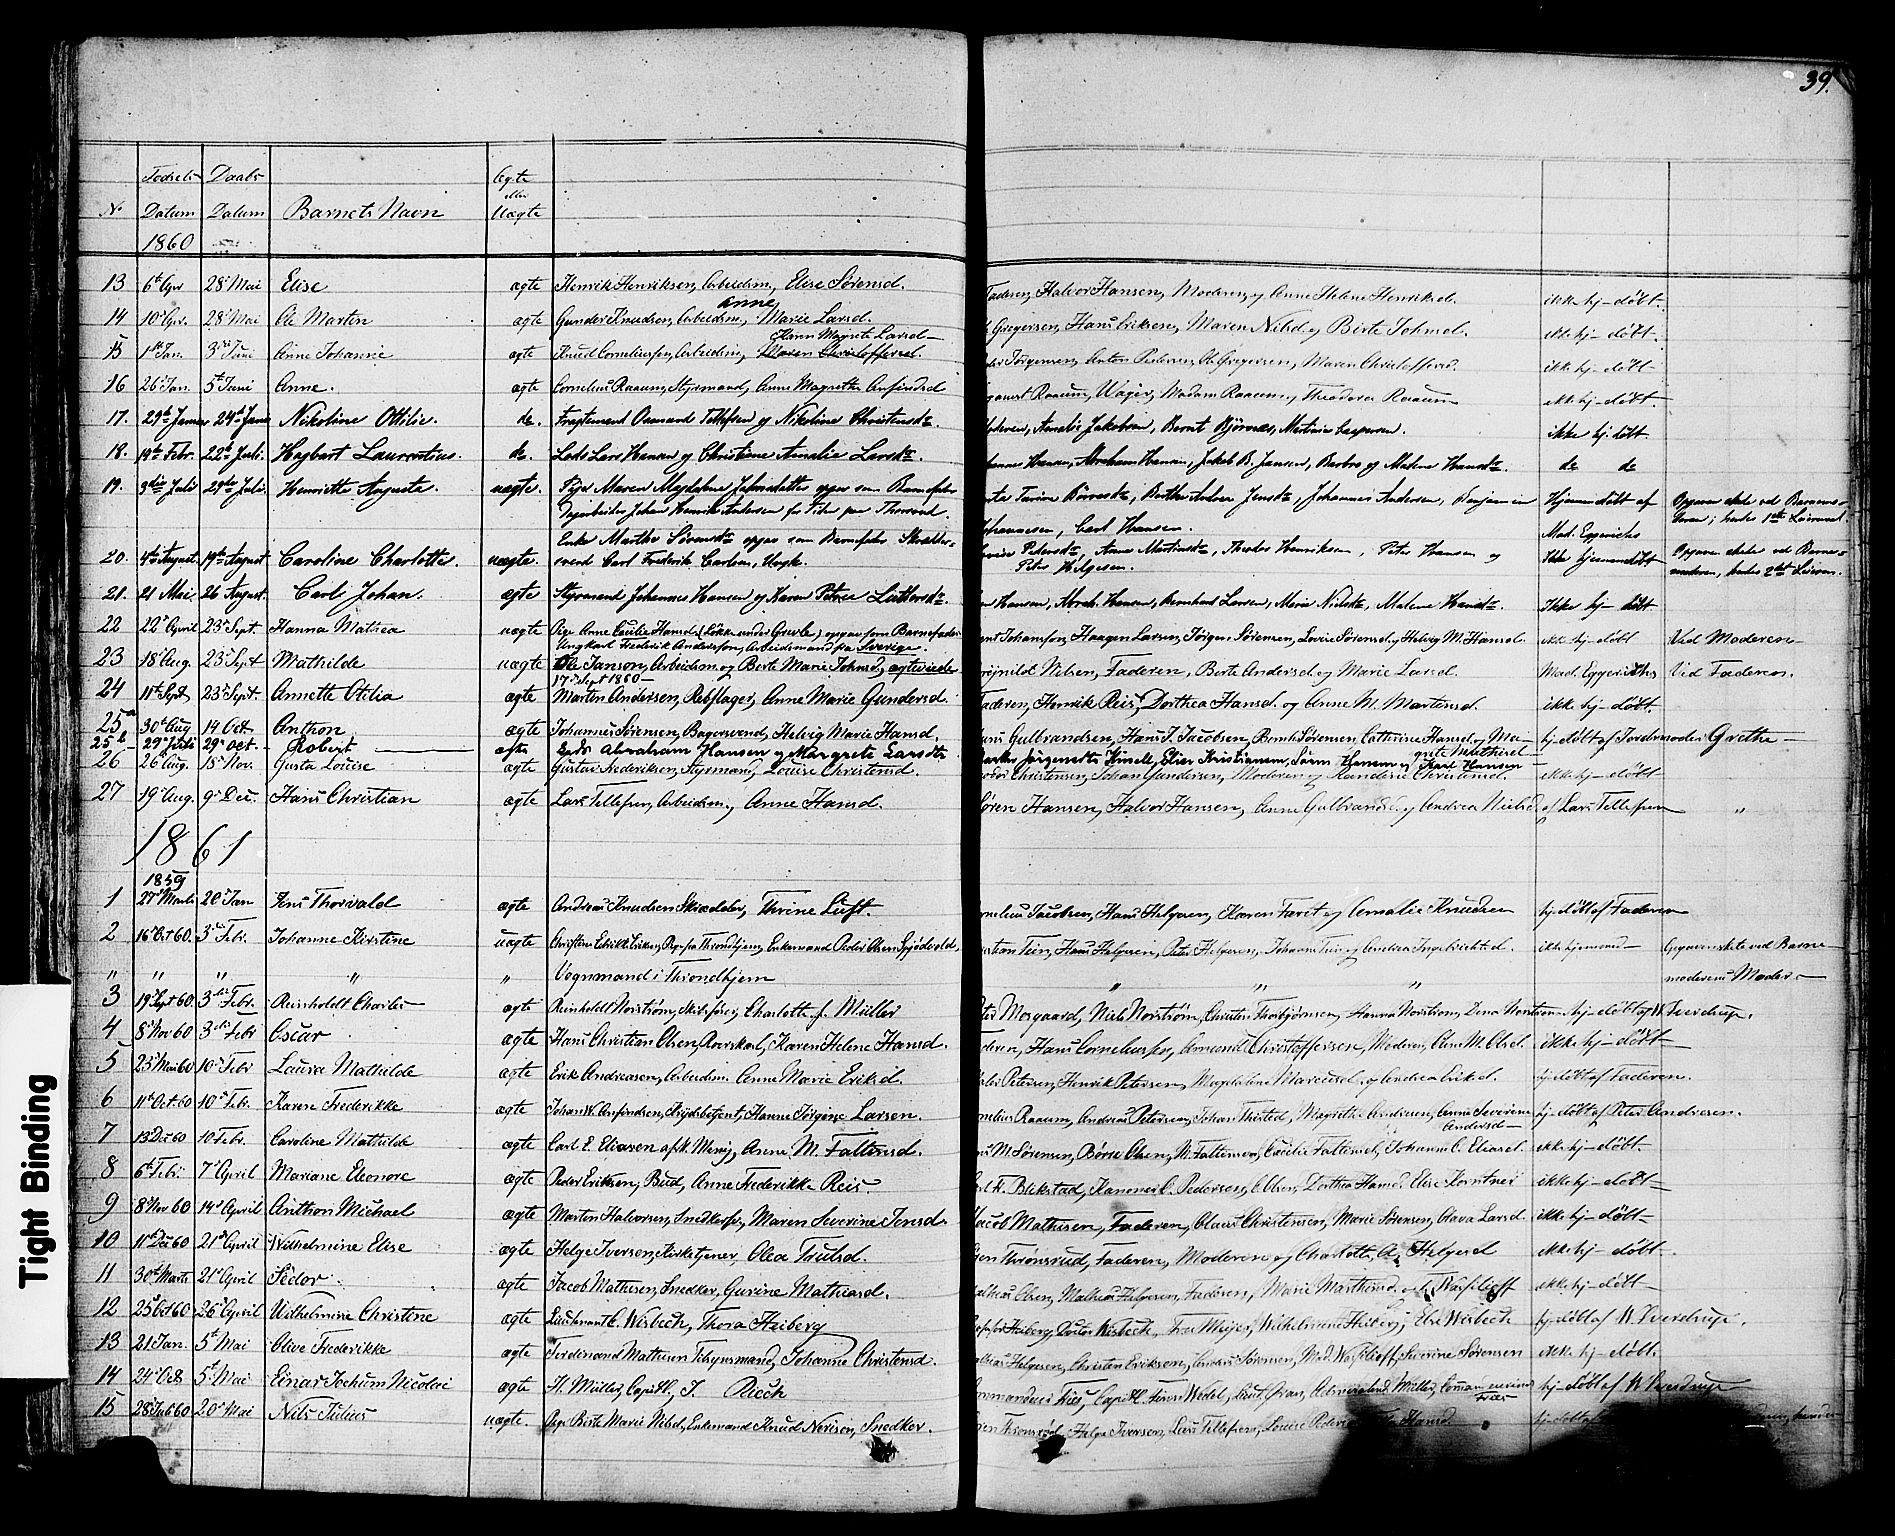 39.
Fødsels Daabs Ægte
eller
No Datum Datum Barnets Navn Uægte
1860
13 6te Apr 28 Mai Elise ægte Henrik Henriksen, Arbeidsm, Elise Sørensd. Faderen, Halvor Hansen, Moderen og Anne Helene Henriksd. ikke hj-døbt.
Anne
14 10 Apr. 28 Mai Ole Martin ægte Gunder Knudsen, Arbeidsm, Marie Larsd. Gregersen, Hans Eriksen, Maren Nilsd. og Birte Johnsd. ikke hj-døbt.
Karen Magrete Larsd
15 1ste Jan. 3die Juni Anne Johanne ægte Knud Corneliussen, Arbeidsm, Maren Christoffersd. Jørgensen, Anton Pedersen, Ole Gregersen, Maren Christoffersd. ikke hj-døbt
16 26 Jan. 5te Juni Anne. ægte Cornelius Raaum, Styrmand, Anne Magrethe Anfindsd Raaum, Wager, Madam Raaum og Theodora Raaum ikke hj-døbt.
17. 29de Januar 24de Juni Nikoline Ottilie. do. Fragtemand Osmund Tellefsen og Nikoline Christensdtr. Moderen, Amalie Jakobsen, Bernt Bjørnæs, Martinius Caspersen. ikke hj. døbt.
18. 14de Febr. 22de Juli. Hagbart Laurentius. do. Lods Lars Hansen og Christiane Amalie Larsdtr. Johannes Hansen, Abraham Hansen, Jakob B. Jansen, Barbro og Malene Hansdtr. do do
19. 3die Juli 29de Juli. Henriette Augusta. uægte. Pige Maren Magdalene Jahnsdatter opgav som Barnefader Turine Børresdtr, Berthe Andrea Jensdtr, Johannes Andersen, Benjamin Hjemmedøbt af Opgaven skete ved Barnets
Dagarbeider Johan Henrik Andersen fra Johannesen, Carl Hansen. Mad. Eggerichs
Enke Marthe Sørensdtr opgav som Barnefader Skrædder-
20. 4de August. 19de August Caroline Charlotte. uægte. svend Carl Frederik Carlsen, Ungk. Pedersdtr, Anne Martinsdtr, Theodor Henriksen, Peter Hansen og Ikke hjemmedøbt Opgaven skete ved Barne-
Peter Helgesen. moderen, hendes 2det Leierm.
21. 21 Mai. 26 August. Carl Johan. ægte Styrmand Johannes Hansen og Karen Petrea Luthersdtr. Hansen, Abrah. Hansen, Bernhard Larsen, Maria Nielsdtr, Malene Hansdtr. Ikke hj-døbt
22 22 April 23 Sept. Hanna Mathea uægte Pige Anne Cecilie Hansd. (Løkke under Guvle) opgav som Barnefader Johansen, Haagen Larsen, Jørgen Sørensen, Lovise Sørensd. og Helvig M. Hansd. ikke hj-døbt Ved Moderen
Ungkarl Frederik Andersson, Arbeidsmand fra Sverige.
23 18 Aug. 23 Sept Mathilde uægte Ole Janson, Arbeidsm. og Berte Marie Johnsd, ægteviede Nilsen, Faderen, Berte Andersd og Marie Larsd. Mad. Eggerichs Ved Faderen.
17 Sept 1860
24 11te Sept 23 Sept. Annette Otilia ægte Martin Andersen, Rebslager, Anne Marie Gundersd. Faderen, Henrik Reis, Dorthea Hansd. og Anne M. Martinsd. ikke hj-døbt.
25a 30te Aug 14 Oct. Anthon ægte Johannes Sørensen, Bagersvend, Helvig Marie Hansd. Gulbrandsen, Hans J. Jacobsen, Bernh. Sørensen, Cathrine Hansd. og Ma- hj-døbt af Jordemoder Grethe
grete Mathisd
25b 29 Juli 29 Oct. Robert ægte Lods Abraham Hansen og Margrete Larsdtr. Jørgensdtr Kinsell, Elise Kristiansen, Søren Hansen og Karl Hansen
26 26 Aug. 18 Nov. Gusta Louise ægte Gustav Frederiksen, Styrmand, Louise Christensd. Christensen, Johan Gundersen, Moderen og Randine Christensd. ikke hj-døbt
27 19 Aug. 9 Dec. Hans Christian ægte Lars Tellefsen, Arbeidsm., Anne Hansd. Søren Hansen, Halvor Hansen, Anne Gulbrandsd. og Andrea Nielsd. af Lars Tellefsen "
1861
1859
1 27 Marts 20 Jan Jens Thorvald ægte Andreas Knudsen Skrædder, Thrine Luft. Cornelius Jacobsen, Hans Helgesen, Karen Faret og Amalie Knudsen hj-døbt af Faderen
2 16 Oct 60. 3die Febr. Johanne Kirstine uægte Christine Edrikke Eriksen, Pige fra Throndhjem, Enkemand Peder Olsen Spjødevold, Tuin, Hans Helgesen, Peter Helgesen, Johanne Tuin og Andrea Ingebrichtsd. ikke hjemmed Opgaven skete ved Barne-
" " " " " Vognmand i Throndhjem " " " moderens Moder
3 19 Sept 60. 3die Febr. Reinholdt Charles ægte Reinholdt Norstrøm, Skibsfører, Charlotte f. Müller Morgaard, Niels Norstrøm, Christine Thorbjørnsen, Hanna Norstrøm, Dena Norstrøm hj-døbt af W. Sverdrup.
4 8 Nov 60 3die Febr Oscar ægte Hans Christian Olsen, Rorskarl, Karen Helene Hansd. Faderen, Hans Corneliussen, Amund Christoffersen, Moderen, Oline M. Olsd. ikke hj-døbt
5 23 Mai 60 10 Febr Laura Mathilde ægte Erik Andreasen, Arbeidsm. Anne Marie Eriksd. Peder Petersen, Henrik Petersen, Magdalene Mariusd. og Andrea Eriksd. hj-døbt af Faderen.
6 11te Oct 60 10 Febr. Karen Frederikke ægte Johan W. Anfindsen, Krydsbetjent, Hanne Jørgine Larsen. Cornelius Raaum, Andreas Petersen, Johan Thisted, Magrethe Andersen, Anne Severine hj-døbt af Peter Andresen.
Andersd
7 13 Dec 60 10 Febr. Caroline Mathilde ægte Carl E. Eliasen afsk. Menig, Anne M. Faltinsd. M. Sørensen, Børre Olsen, M. Faltinsen, Cecilie Faltinsd., Johanne C. Eliasd. ikke hj-døbt.
8 6te Febr. 7 April Mariane Eleonore ægte Peder Eriksen, Bud, Anne Frederikke Reis. Blikstad, Kanoner C. Pedersen, C. Olsen, Dorthea Hansd. Elise Korntner ikke hj-døbt
9 8 Nov 60 14 April Anthon Michael ægte Martin Halvorsen, Snedkersv, Maren Severine Jonsd. Jacob Mathisen, Faderen, Claus Christensen, Marie Sørensen, Olava Larsd. ikke hj-døbt
10 11te Dec 60 21 April Wilhelmine Elise ægte Helge Iversen, Kirketjener, Olea Trulsd. Thrønsrud, Faderen, Moderen og Charlotte A. Helgesd ikke hj-døbt.
11 30te Marts 21 April Fedor ægte Jacob Mathisen, Snedker, Gurine Mathiasd. Mathias Olsen, Mathias Helgesen, Faderen, Marie Marthinsd. og Wasilioff ikke hj-døbt
12 25 Oct 60 26 April Wilhelmine Christine ægte Lieutnant C. Wisbech, Thora Heiberg Professor Heiberg, Doctor Wisbech, Fru Meijer, Wilhelmine Heiberg, Elise Wisbech hj-døbt af W. Sverdrup.
13 21 Jan. 5te Mai Olive Frederikke ægte Ferdinand Mathisen Tilsynsmand, Johanne Christensd. Mathias Helgesen, Christen Eriksen, Anders Sørensen, Mad. Wasilioff, Severine Sørensen ikke hj-døbt.
14 24 Oct 5te Mai Einar Jochum Nicolai ægte H. Müller, Capitl., J. Rieck Commandeur Friis, Capitl. Ferns Wedel, Lieut. Gran, Admiralinde Müller, Commandeurinde hj-døbt af W. Sverdrup
Friis
15 28 Juli 60 20 Mai Nils Julius uægte Pige Berte Marie Nilsd, Enkemand Knud Nerisen, Snedker. Thronsrød, Helge Iversen, Lars Tellefsen, Louise Peders Hansd. hj-døbt af
Tight Binding